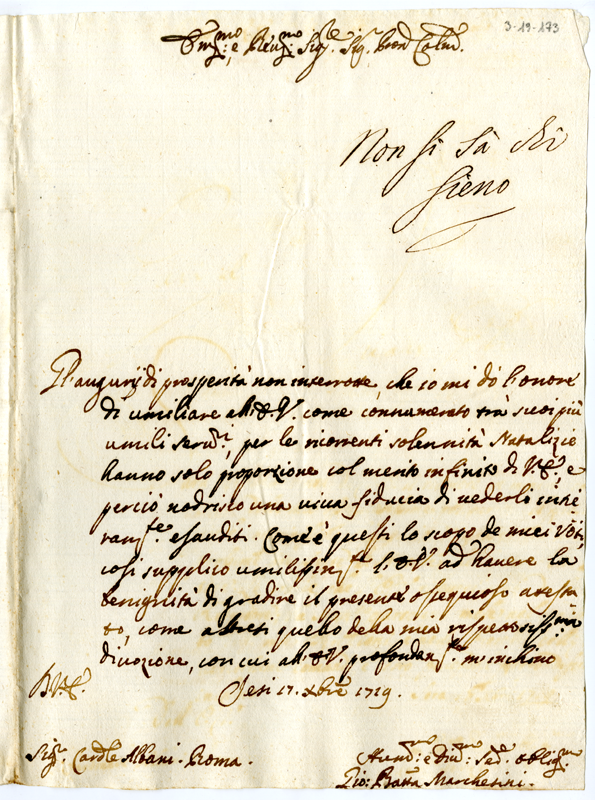 3-19-173
Em:mo e Rev:mo Sig:re Sig:r Pron Colmo.
Non si sà chi
sieno
Gl'augurij di prosperità non interrotte, che io mi dò l'onore
di umiliare all'E.V. come connumerato trà suoi più
umili Serv:ri, per le ricorrenti solennità Natalizie
hanno solo proporzione col merito infinito di V.E., e
perciò nodrisco una viva fiducia di vederli intie
ram:te esauditi. Com'è questi lo scopo de miei Voti,
così supplico umilissim:te l'E.V. ad havere la
benignità di gradire il presente ossequioso attesta
to, come altresì quello della mia rispettosiss:ma
divozione, con cui all'E.V. profondam:te m'inchino
Jesi 17. Xbre 1719.
Sig:r Cardle Albani. Roma.
Hum:mo e Div:mo Se:re oblig:mo
Gio: Batta Marchesini.